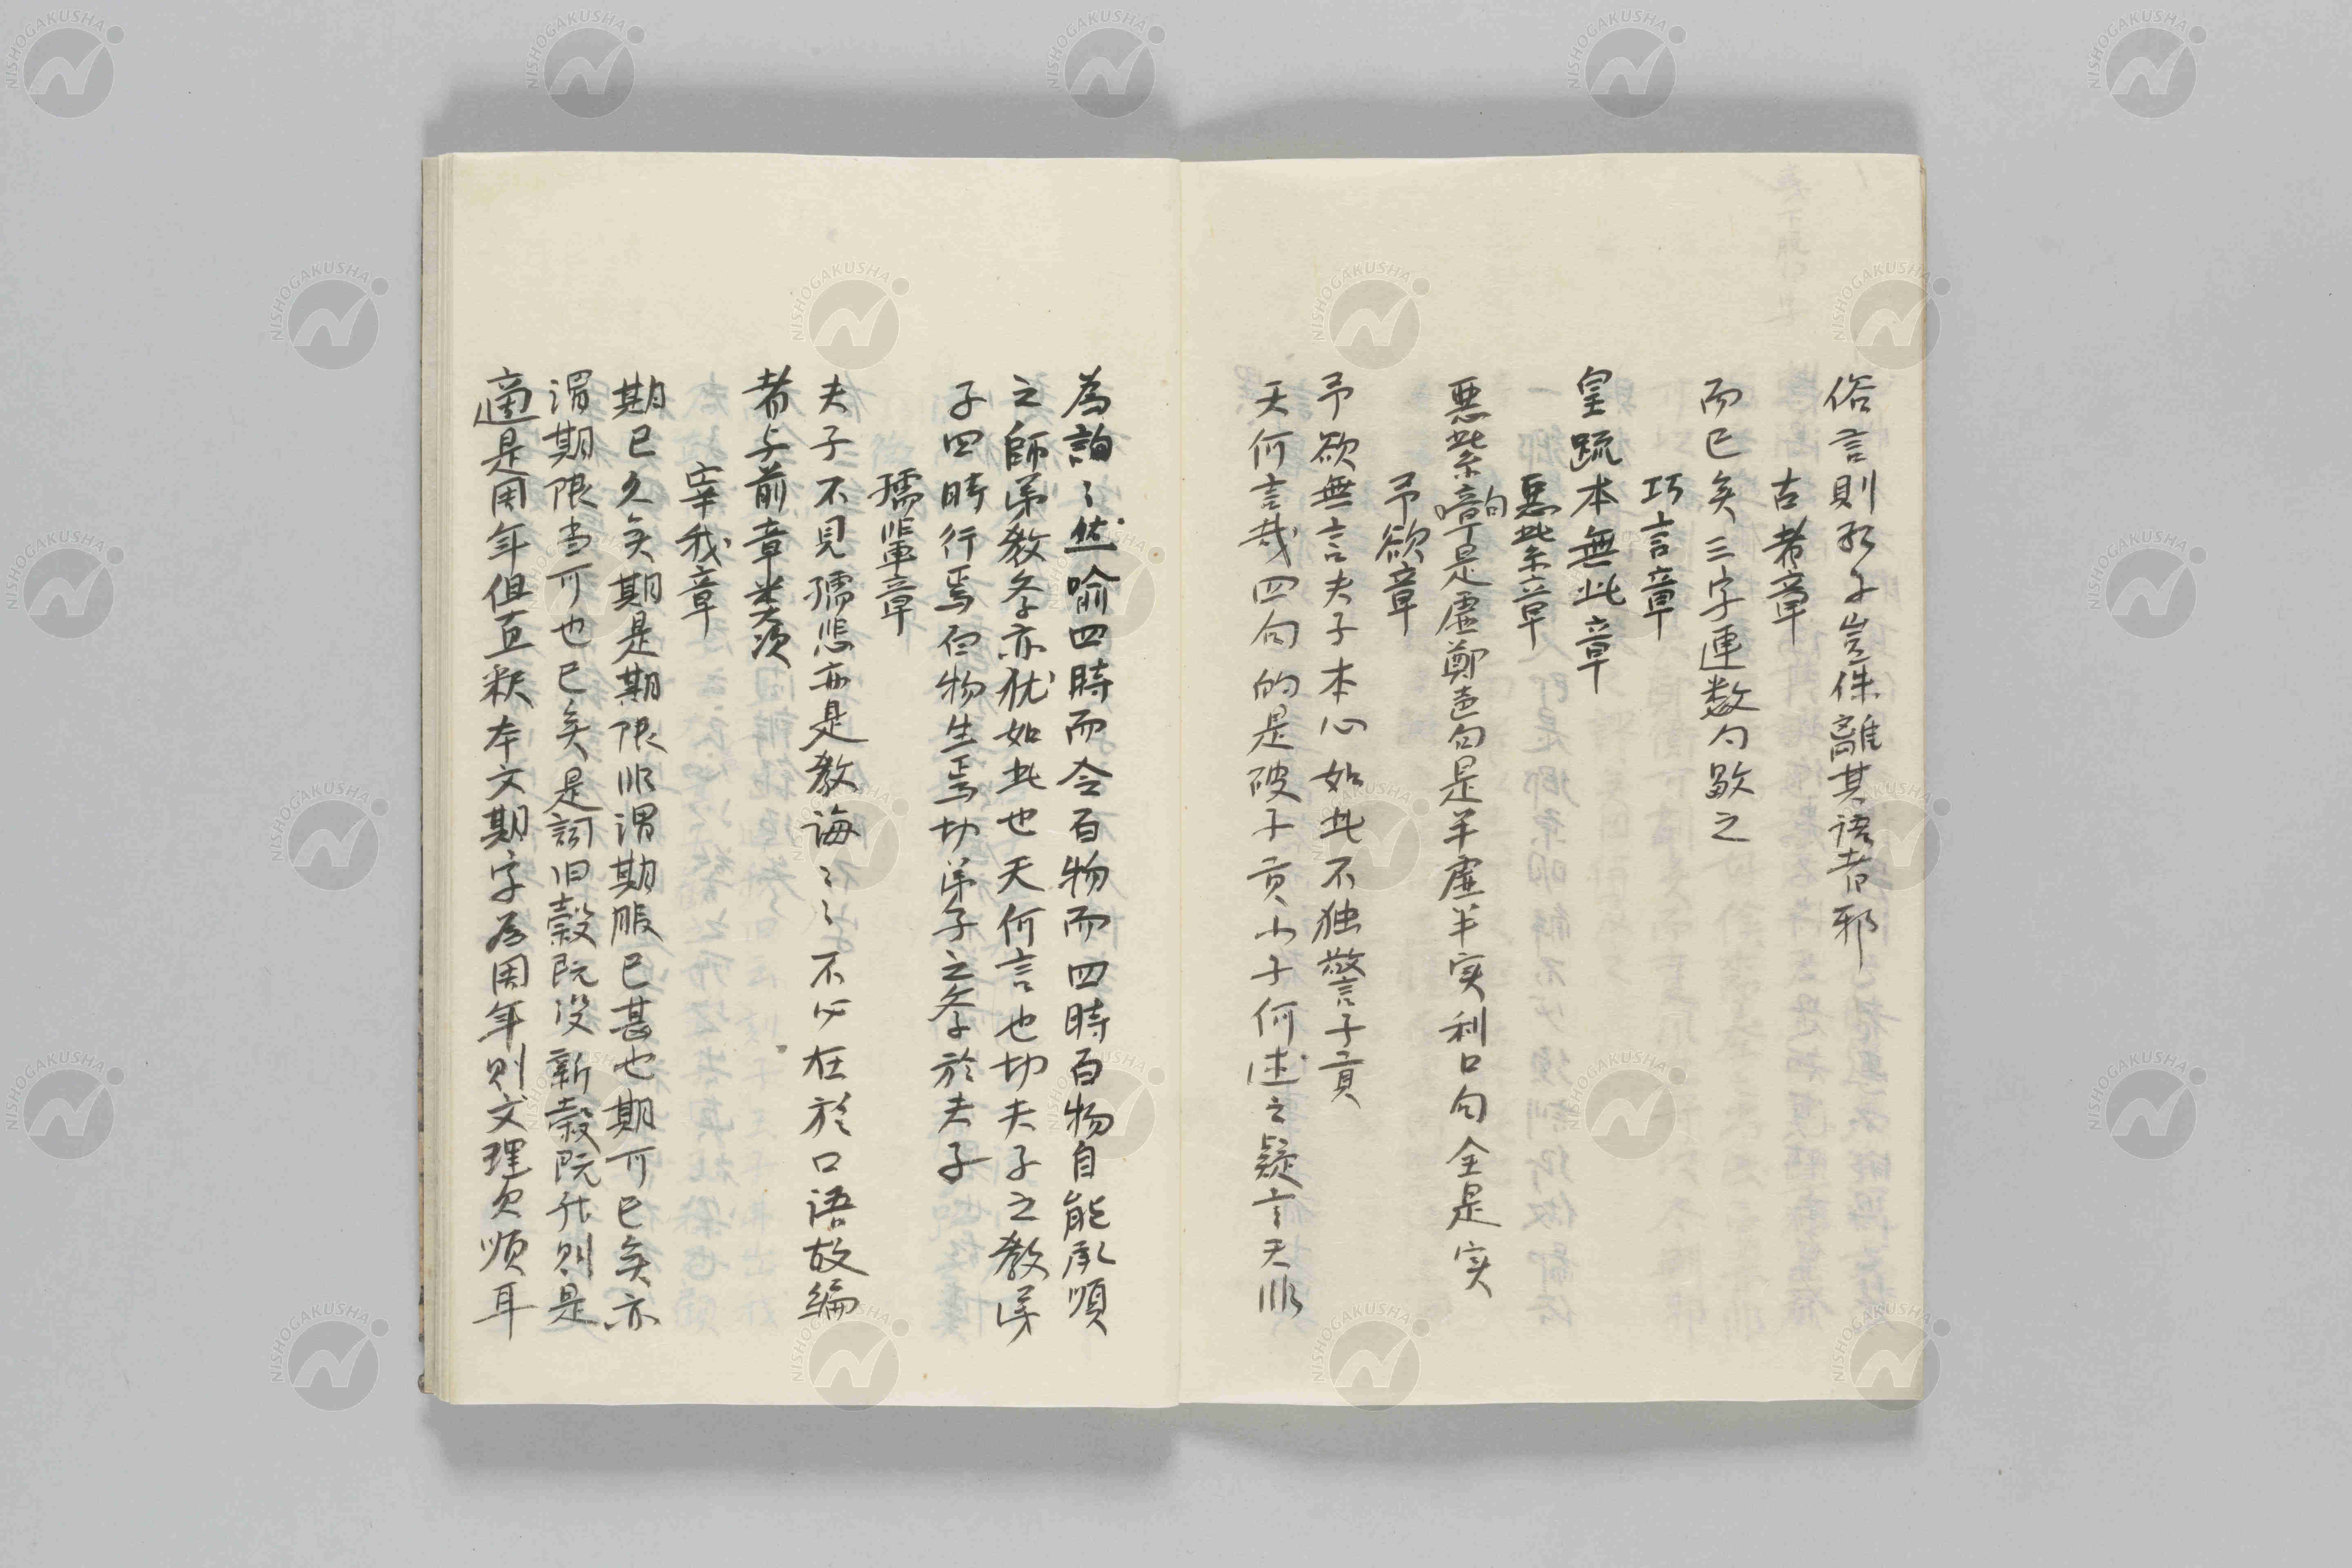 俗言則孔子豈侏離其語者邪
古者章
而已矣三字連数句歇之
巧言章
皇疏本無此章
惡紫章
惡紫章句是虚鄭声句是半虚半実利口句全是実
予欲章
予欲無言夫子本心如此不独警子貢
天何言哉四句的是破子貢小子何述之疑言天非
為詢〻然喩四時而令百物而四時百物自能承順
之師弟教学亦猶如此也天何言也切夫子之教弟
子四時行焉百物生焉切弟子之学於夫子
孺悲章
夫子不見孺悲亦是教誨〻〻不必在於口語故編
者与前章类次
宰我章
期已久矣期是期限非謂期服已甚也期可已矣亦
謂期限当可也已矣是訶旧穀既没新穀既升則是
適是周年但直釈本文期字為周年則文理欠順耳
NISHOGAKUSHA